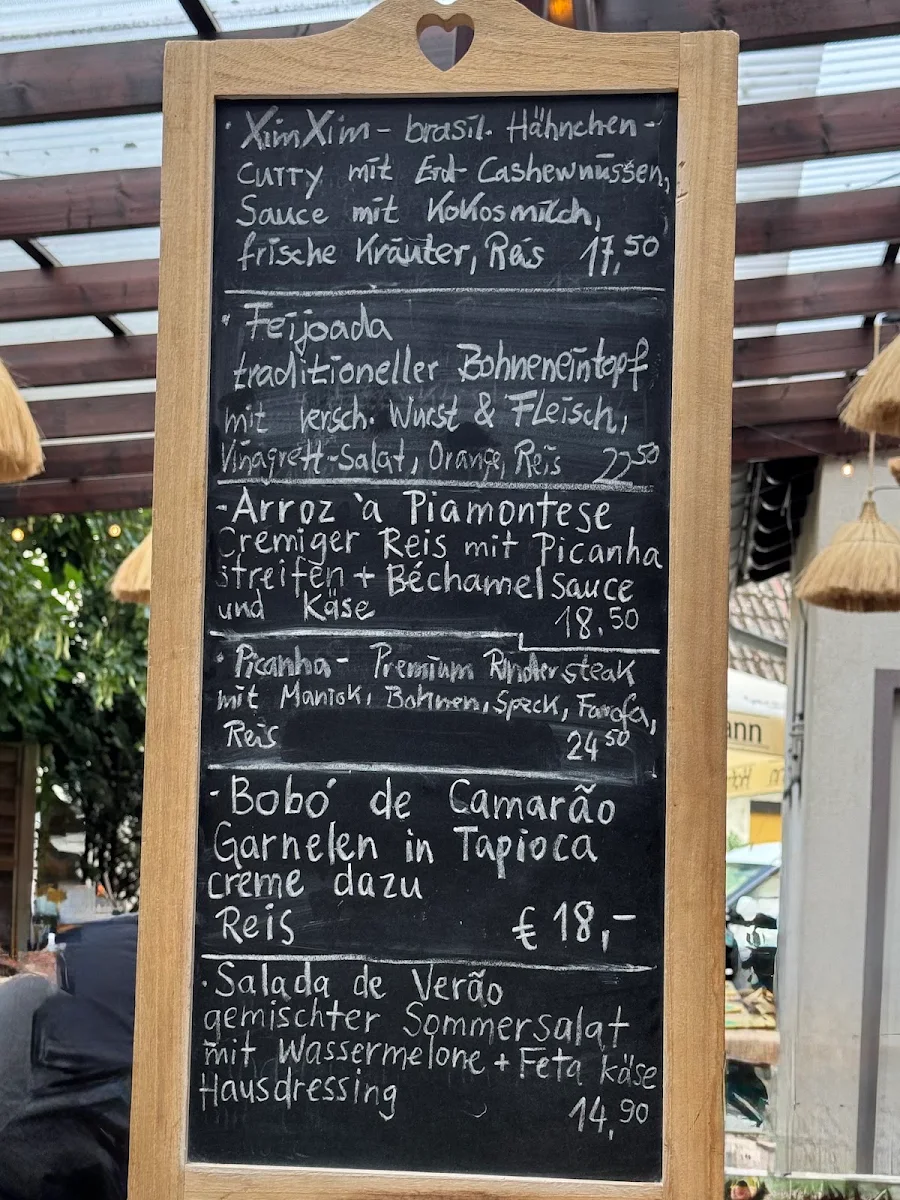 · XimXim - brasil. Hähnchen-
curry mit Erd- Cashewnüssen,
Sauce mit Kokosmilch,
frische Kräuter, Reis 17,50
· Feijoada
traditioneller Bohneneintopf
mit versch. Wurst & Fleisch,
Vinagrett-Salat, Orange, Reis 22 50
- Arroz `a Piamontese
Cremiger Reis mit Picanha
streifen + Béchamel sauce
und Käse 18.50
· Picanha - Premium Rindersteak
mit Maniok, Bohnen, Speck, Farofa,
Reis 24 50
- Bobó de Camarão
Garnelen in Tapioca
creme dazu
Reis € 18,-
· Salada de Verão
gemischter Sommersalat
mit Wassermelone + Feta käse
Hausdressing
14,90
ann